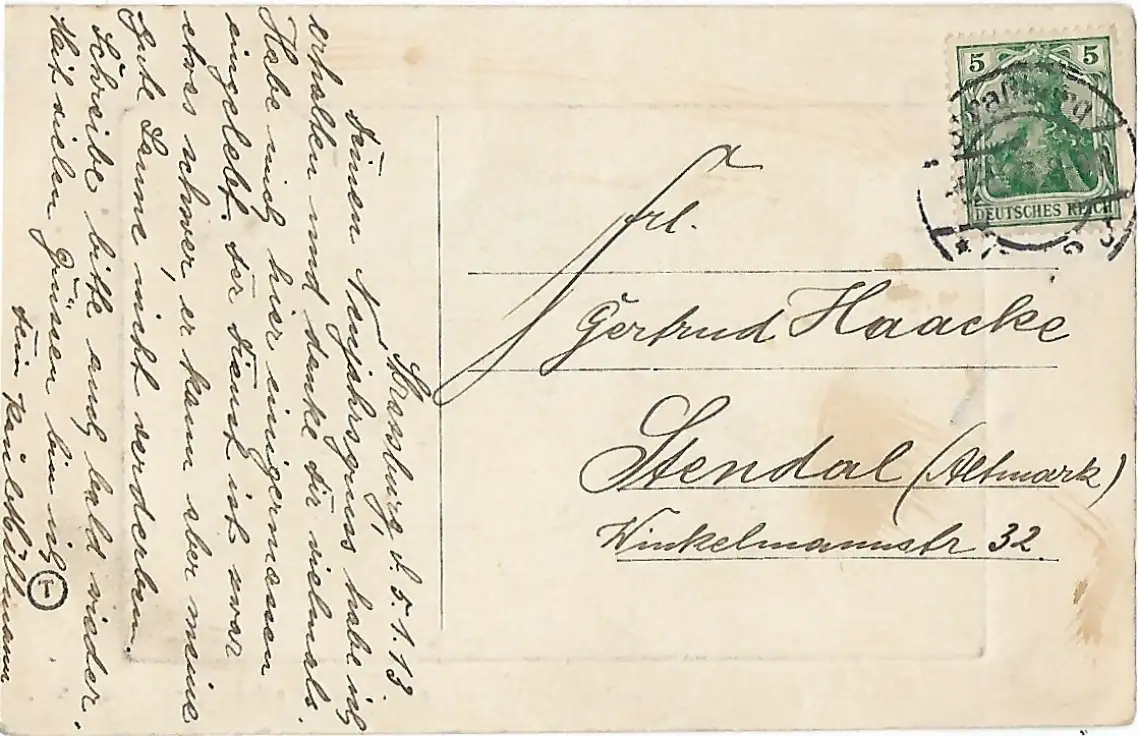 Strassburg, d. 5.1.13
Deinen Neujahrsgruss habe ich
erhalten und danke Dir vielmals.
Habe mich hier einigermassen
eingelebt. Der Dienst ist zwar
etwas schwer, er kann aber meine
gute Laune nicht verderben.
Schreibe bitte auch bald wieder.
Mit vielen Grüssen bin ich
Dein
5 5
DEUTSCHES REICH
Frl.
Gertrud Haacke
Stendal (Altmark)
Winkelmannstr 32.